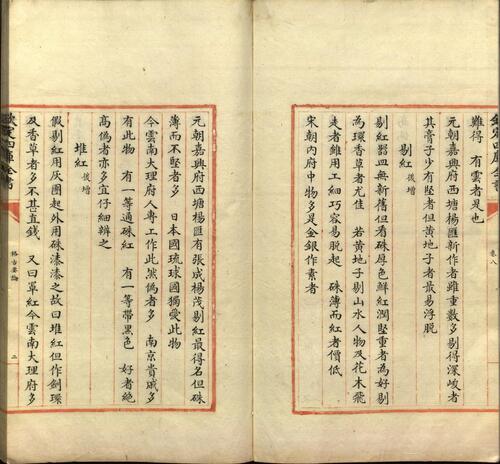 欽定四庫全書
卷八
難得 有雲者是也
元朝嘉興府西塘楊匯新作者雖重數多剔得深峻者
其膏子少有堅者但黄地子者最易浮脱
剔紅 後增
剔紅器皿無新舊但看硃厚色鮮紅潤堅重者為好剔
為環香草者尤佳 若黄地子剔山水人物及花木飛
走者雖用工細巧容易脱起 硃薄而紅者價低
宋朝内府中物多是金銀作素者
元朝嘉興府西塘楊匯有張成楊茂剔紅最得名但硃
薄而不堅者多 日本國琉球國獨愛此物
今雲南大理府人專工作此然偽者多 南京貴戚多
有此物 有一等通硃紅 有一等帶黑色 好者絶
高偽者亦多宜仔細辨之
堆紅 後增
假剔紅用灰團起外用硃漆漆之故曰堆紅但作劍環
及香草者多不甚直錢 又曰罩紅今雲南大理府多
欽定四庫全書
格古要論
二